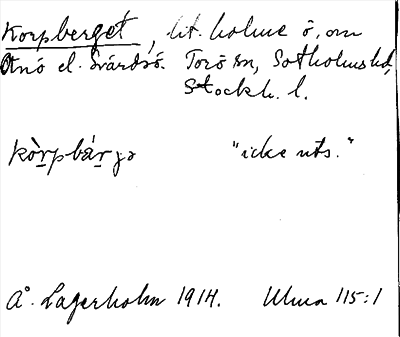 Korpberget, lit. holme ö. om
Otnö el. Svärdsö. Torö sn, Sotholms hd,
Stockh. l.
kòrpbárgə "icke uts."
Å. Lagerholm 1914. Ulma 115:1